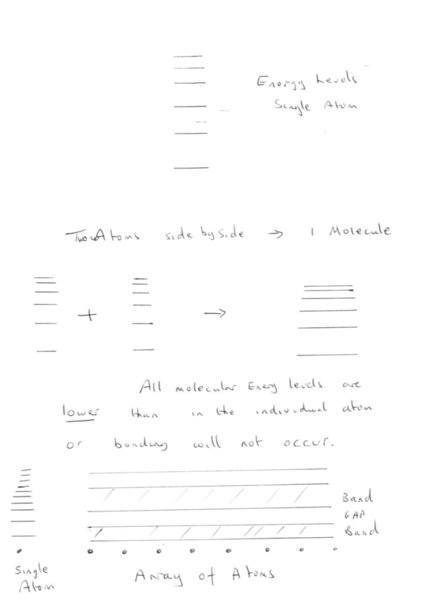 Energy Levels
Single Atom
Two Atoms side by side → 1 Molecule
+ →
All molecular Energy levels are
lower than in the individual atom
or bonding will not occur.
Band
GAP
Band
Single
Atom
Array of Atoms